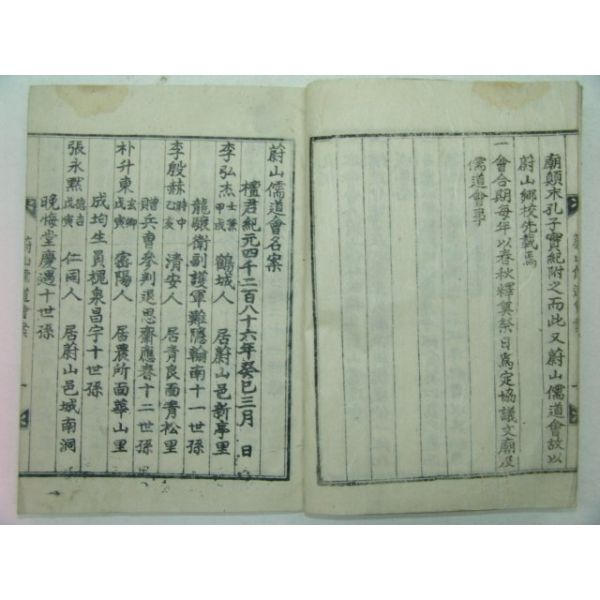 廟顛末孔子實紀附之而此又蔚山儒道會故以
蔚山鄕校先載焉
一會合期每年以春秋釋奠祭日爲定協議文廟及
儒道會事
蔚山儒道會名案
檀君紀元四千二百八十六年癸巳三月 日
李弘杰 士業 甲戌 鶴城人 居蔚山邑新亭里
龍驤衛副護軍難隱翰南十一世孫
李殷赫 時中 乙亥 淸安人 居靑良面靑松里
贈兵曹參判退思齋應春十二世孫
朴升東 玄卿 戊寅 密陽人 居農所面華山里
成均生員槐泉昌宇十世孫
張永黙 德吉 戊寅 仁同人 居蔚山邑城南洞
晚悔堂慶遇十世孫
蔚山儒道會案
一